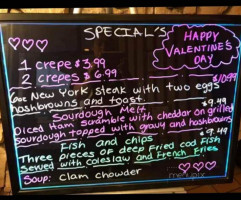 SPECIAL'S
HAPPY
VALENTINE'S
DAY
1 crepe $3.99
2 crepes $6.99
$10.99
6oz New York steak with two eggs
hashbrowns and toast
Sourdough Melt $9.49
Diced Ham scramble with cheddar on grilled
sourdough topped with gravy and hashbrowns
Fish and chips $9.49
Three pieces of deep fried cod Fish
Served with Coleslaw and French Fries
Soup: clam chowder